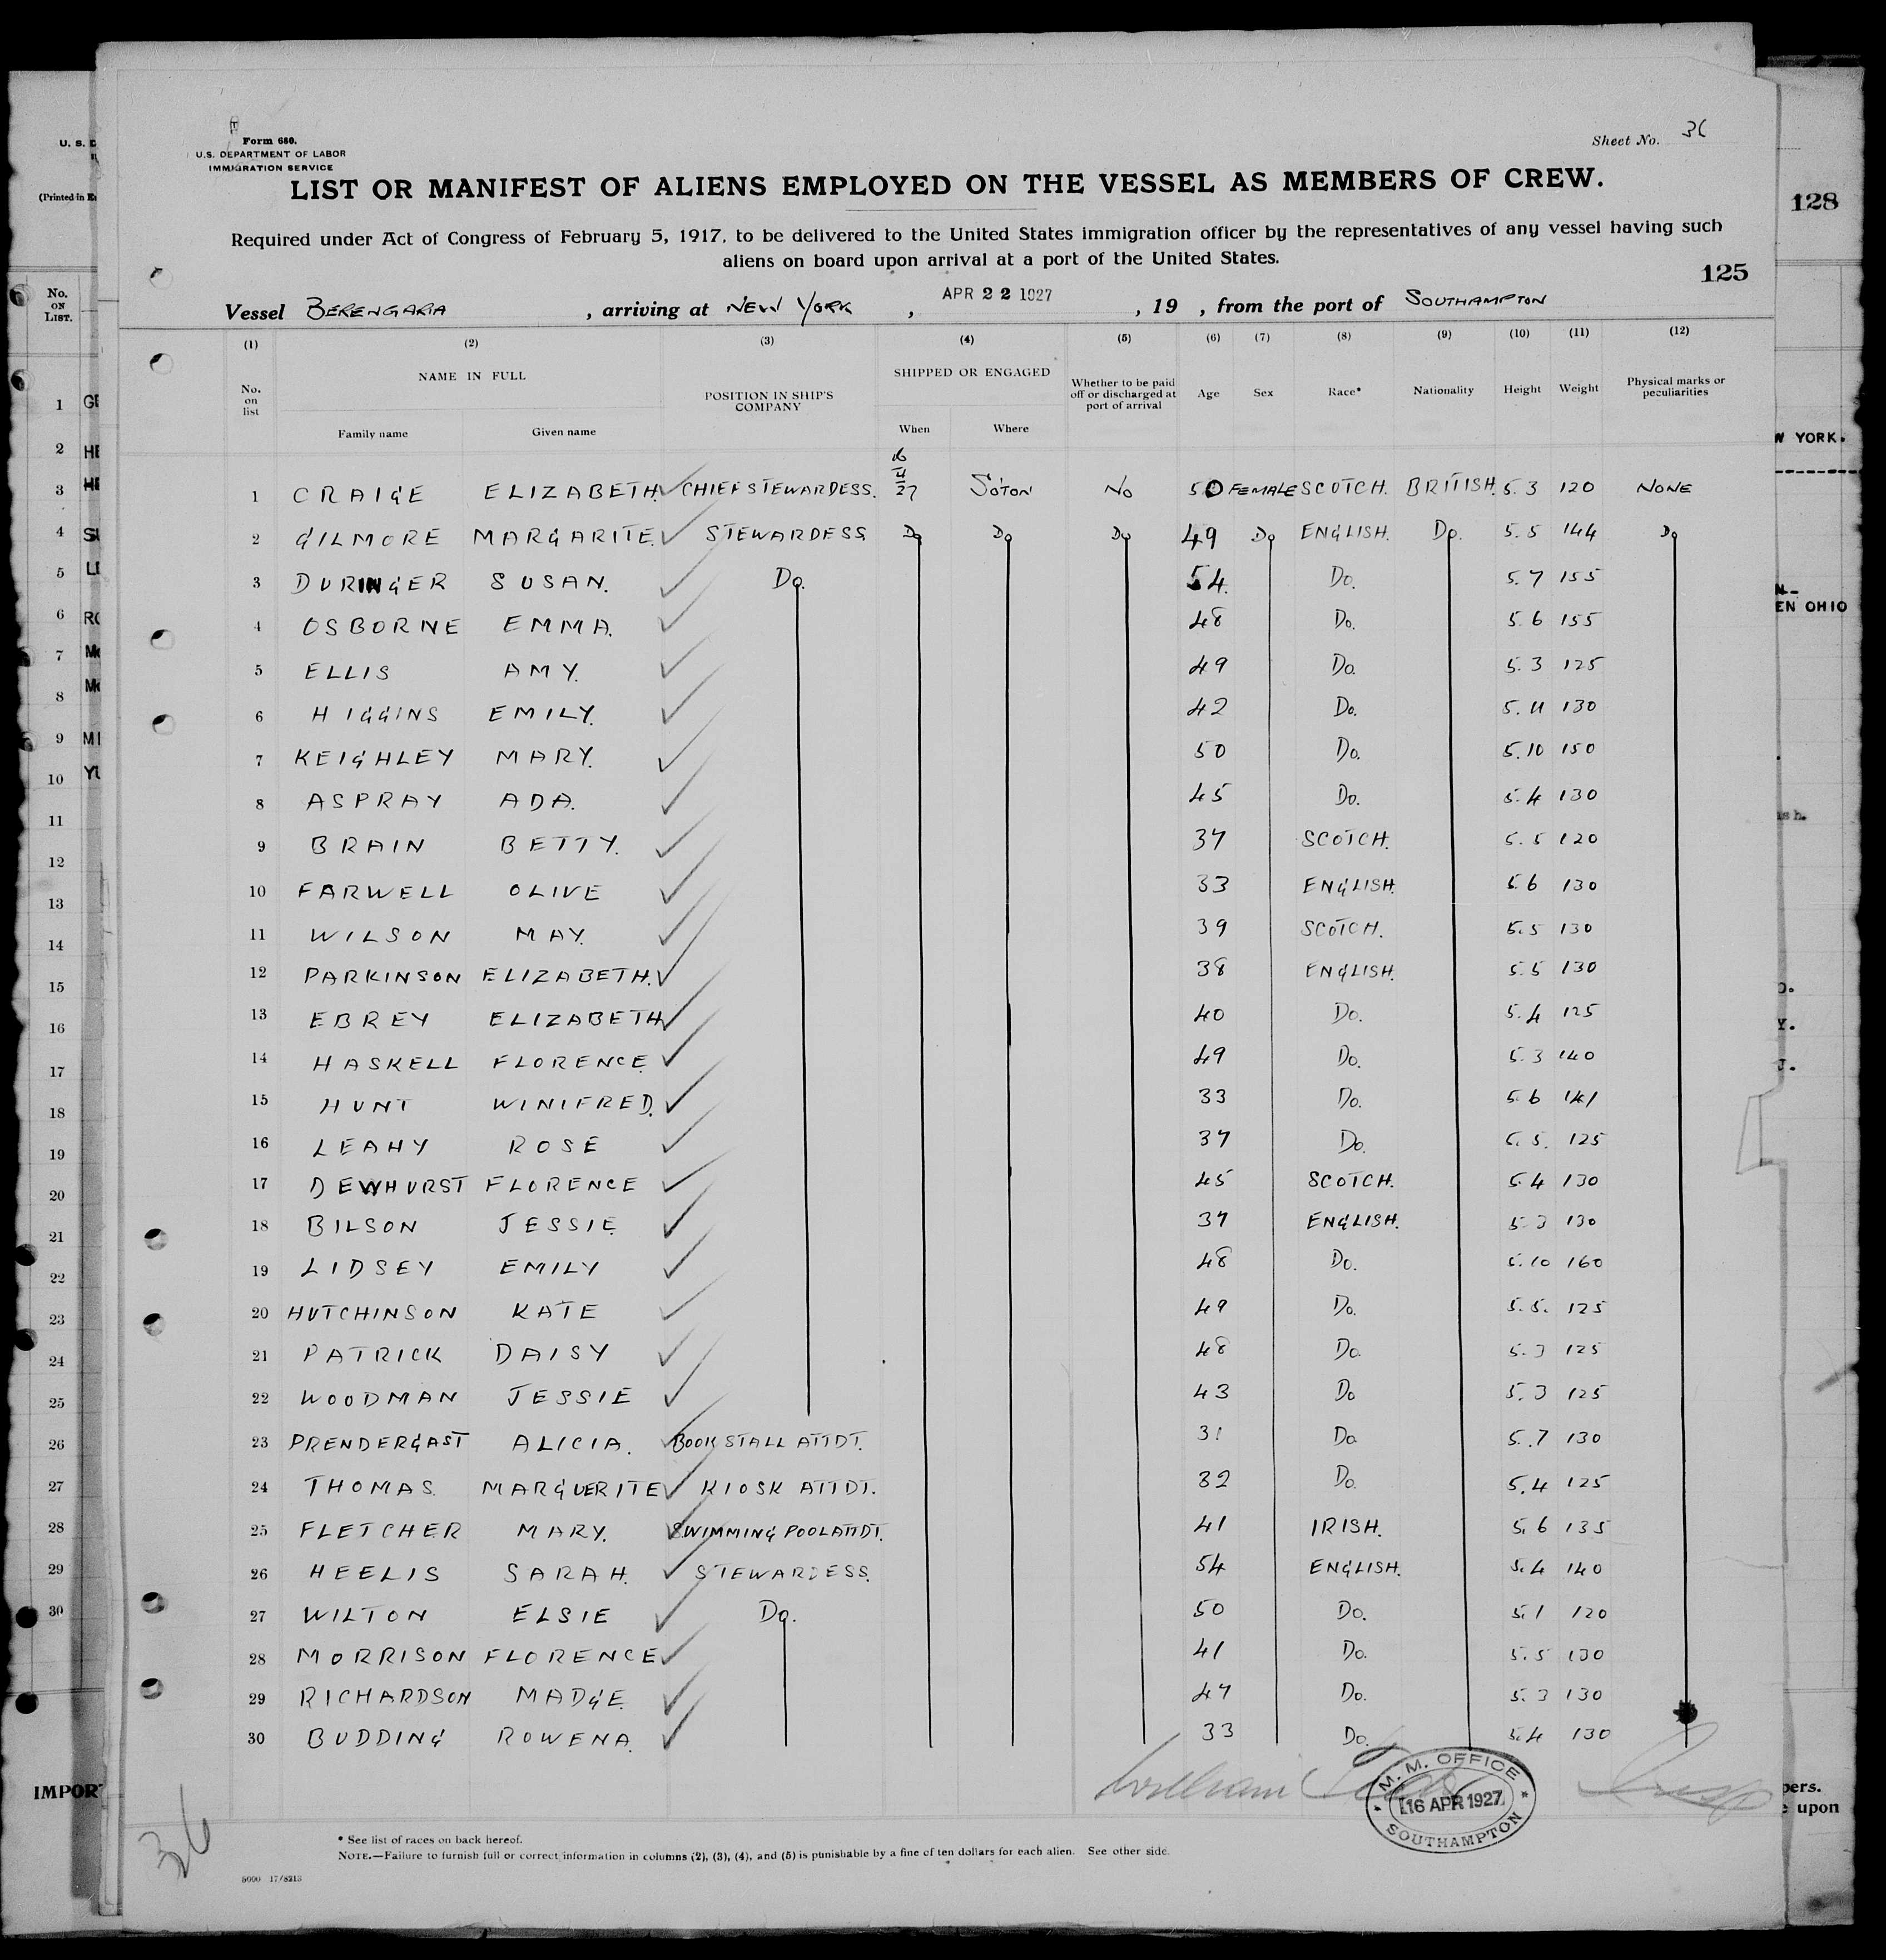 Form 680.
U.S. DEPARTMENT OF LABOR
IMMIGRATION SERVICE
Sheet No. 36
LIST OR MANIFEST OF ALIENS EMPLOYED ON THE VESSEL AS MEMBERS OF CREW.
Required under Act of Congress of February 5, 1917, to be delivered to the United States immigration officer by the representatives of any vessel having such
aliens on board upon arrival at a port of the United States.
125
Vessel BERENGARIA, arriving at NEW YORK, APR 22 1927, 19 , from the port of SOUTHAMPTON
(1) (2) (3) (4) (5) (6) (7) (8) (9) (10) (11) (12)
No. on list NAME IN FULL POSITION IN SHIP'S COMPANY SHIPPED OR ENGAGED Whether to be paid off or discharged at port of arrival Age Sex Race* Nationality Height Weight Physical marks or peculiarities
Family name Given name When Where
1 CRAIGE ELIZABETH. CHIEF STEWARDESS. 16/4/27 SOTON NO 50 FEMALE SCOTCH. BRITISH. 5.3 120 NONE
2 GILMORE MARGARITE. STEWARDESS Do Do Do 49 Do ENGLISH. Do. 5.5 144 Do
3 DURINGER SUSAN. Do. 54. Do. 5.7 155
4 OSBORNE EMMA. 48 Do. 5.6 155
5 ELLIS AMY. 49 Do. 5.3 125
6 HIGGINS EMILY. 42 Do. 5.11 130
7 KEIGHLEY MARY. 50 Do. 5.10 150
8 ASPRAY ADA. 45 Do. 5.4 130
9 BRAIN BETTY. 37 SCOTCH. 5.5 120
10 FARWELL OLIVE 33 ENGLISH. 5.6 130
11 WILSON MAY. 39 SCOTCH. 5.5 130
12 PARKINSON ELIZABETH. 38 ENGLISH. 5.5 130
13 EBREY ELIZABETH 40 Do. 5.4 125
14 HASKELL FLORENCE 49 Do. 5.3 140
15 HUNT WINIFRED. 33 Do. 5.6 141
16 LEAHY ROSE 37 Do. 5.5. 125
17 DEWHURST FLORENCE 45 SCOTCH. 5.4 130
18 BILSON JESSIE. 37 ENGLISH. 5.3 130
19 LIDSEY EMILY 48 Do. 5.10 160
20 HUTCHINSON KATE 49 Do. 5.5. 125
21 PATRICK DAISY 48 Do. 5.3 125
22 WOODMAN JESSIE 43 Do 5.3 125
23 PRENDERGAST ALICIA. BOOK STALL ATTDT. 31 Do 5.7 130
24 THOMAS MARGUERITE KIOSK ATTDT. 32 Do. 5.4 125
25 FLETCHER MARY. SWIMMING POOL ATTDT. 41 IRISH. 5.6 135
26 HEELIS SARAH. STEWARDESS. 54 ENGLISH. 5.4 140
27 WILTON ELSIE Do. 50 Do. 5.1 120
28 MORRISON FLORENCE 41 Do. 5.5 130
29 RICHARDSON MADGE. 47 Do. 5.3 130
30 BUDDING ROWENA. 33 Do. 5.4 130
William
M. M. OFFICE
16 APR 1927
SOUTHAMPTON
36
* See list of races on back hereof.
NOTE.—Failure to furnish full or correct information in columns (2), (3), (4), and (5) is punishable by a fine of ten dollars for each alien. See other side.
5000 17/8213
U. S. D
(Printed in
No. ON LIST.
1 GE
2 HE
3 HE
4
5
6 RO
7 Mc
8 Mc
9 MI
10 YU
11
12
13
14
15
16
17
18
19
20
21
22
23
24
25
26
27
28
29
30
IMPOR
128
W YORK.
EN OHIO
pers.
e upon